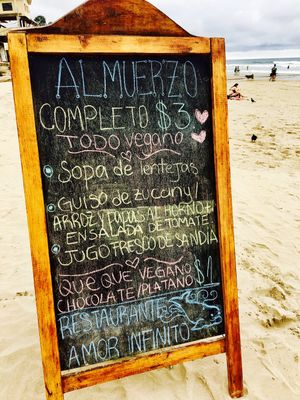 ALMUERZO
COMPLETO $3
TODO vegano
• Sopa de lentejas
• Guiso de zucciny/
ARROZ/PAPAS AL HORNO+
ENSALADA DE TOMATE
• JUGO FRESCO DE SANDIA
QUE QUE VEGANO $1
CHOCOLATE/PLATANO
RESTAURANTE
AMOR INFINITO